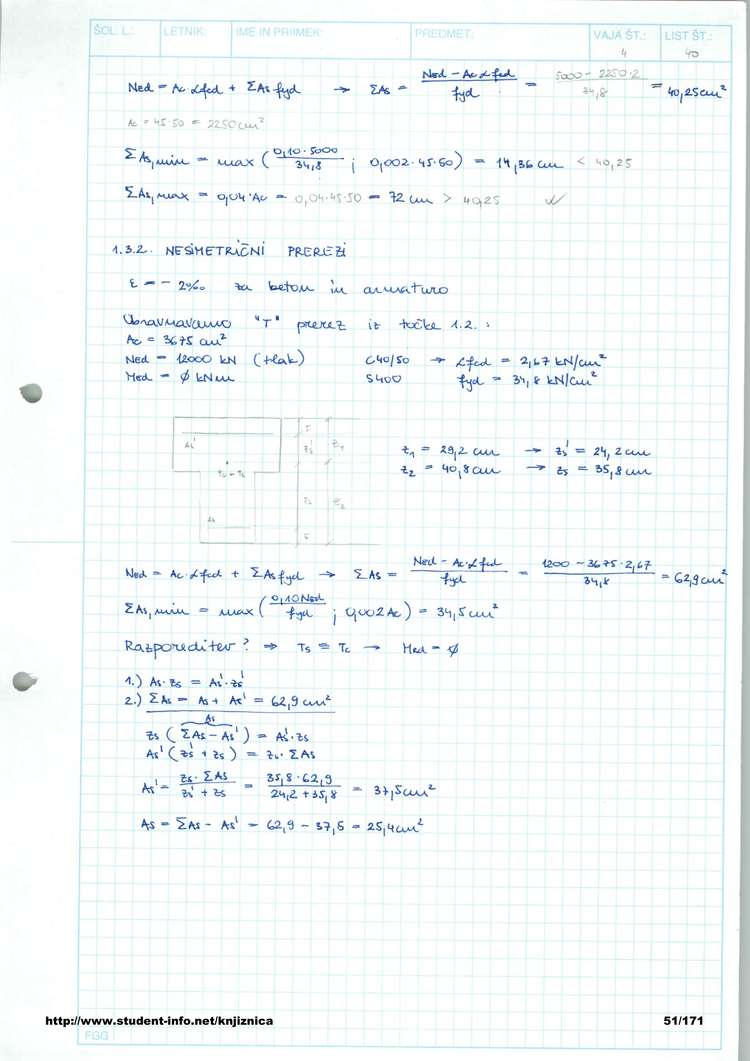 ŠOL. L.: LETNIK: IME IN PRIIMEK: PREDMET: VAJA ŠT.: 4 LIST ŠT.: 40
Ned = Ac αfcd + ΣAs fyd → ΣAs = (Ned - Ac α fcd) / fyd = (5000 - 2250·2) / 34,8 = 40,25 cm²
Ac = 45·50 = 2250 cm²
ΣAs,min = max (0,10·5000 / 34,8 ; 0,002·45·50) = 14,36 cm < 40,25
ΣAs,max = 0,04·Ac = 0,04·45·50 = 72 cm > 40,25 ✓
1.3.2. NESIMETRIČNI PREREZI
ε = - 2‰ za beton in armaturo
Obravnavamo "T" prerez iz točke 1.2. :
Ac = 3675 cm²
Ned = 12000 kN (tlak) C40/50 → αfcd = 2,67 kN/cm²
Med = ∅ kNm S400 fyd = 34,8 kN/cm²
As' 5 zs' z1
Tc = Ts
z1 = 29,2 cm → zs' = 24,2 cm
z2 = 40,8 cm → zs = 35,8 cm
zs z2
As 5
Ned = Ac·αfcd + ΣAs fyd → ΣAs = (Ned - Ac·αfcd) / fyd = (1200 - 3675·2,67) / 34,8 = 62,9 cm²
ΣAs,min = max (0,10 Ned / fyd ; 0,002 Ac) = 34,5 cm²
Razporeditev? ⇒ Ts ≡ Tc → Med = ∅
1.) As·zs = As'·zs'
2.) ΣAs = As + As' = 62,9 cm²
As
zs (ΣAs - As') = As'·zs
As' (zs' + zs) = zs·ΣAs
As' = (zs·ΣAs) / (zs' + zs) = (35,8·62,9) / (24,2 + 35,8) = 37,5 cm²
As = ΣAs - As' = 62,9 - 37,5 = 25,4 cm²
http://www.student-info.net/knjiznica 51/171
FGG